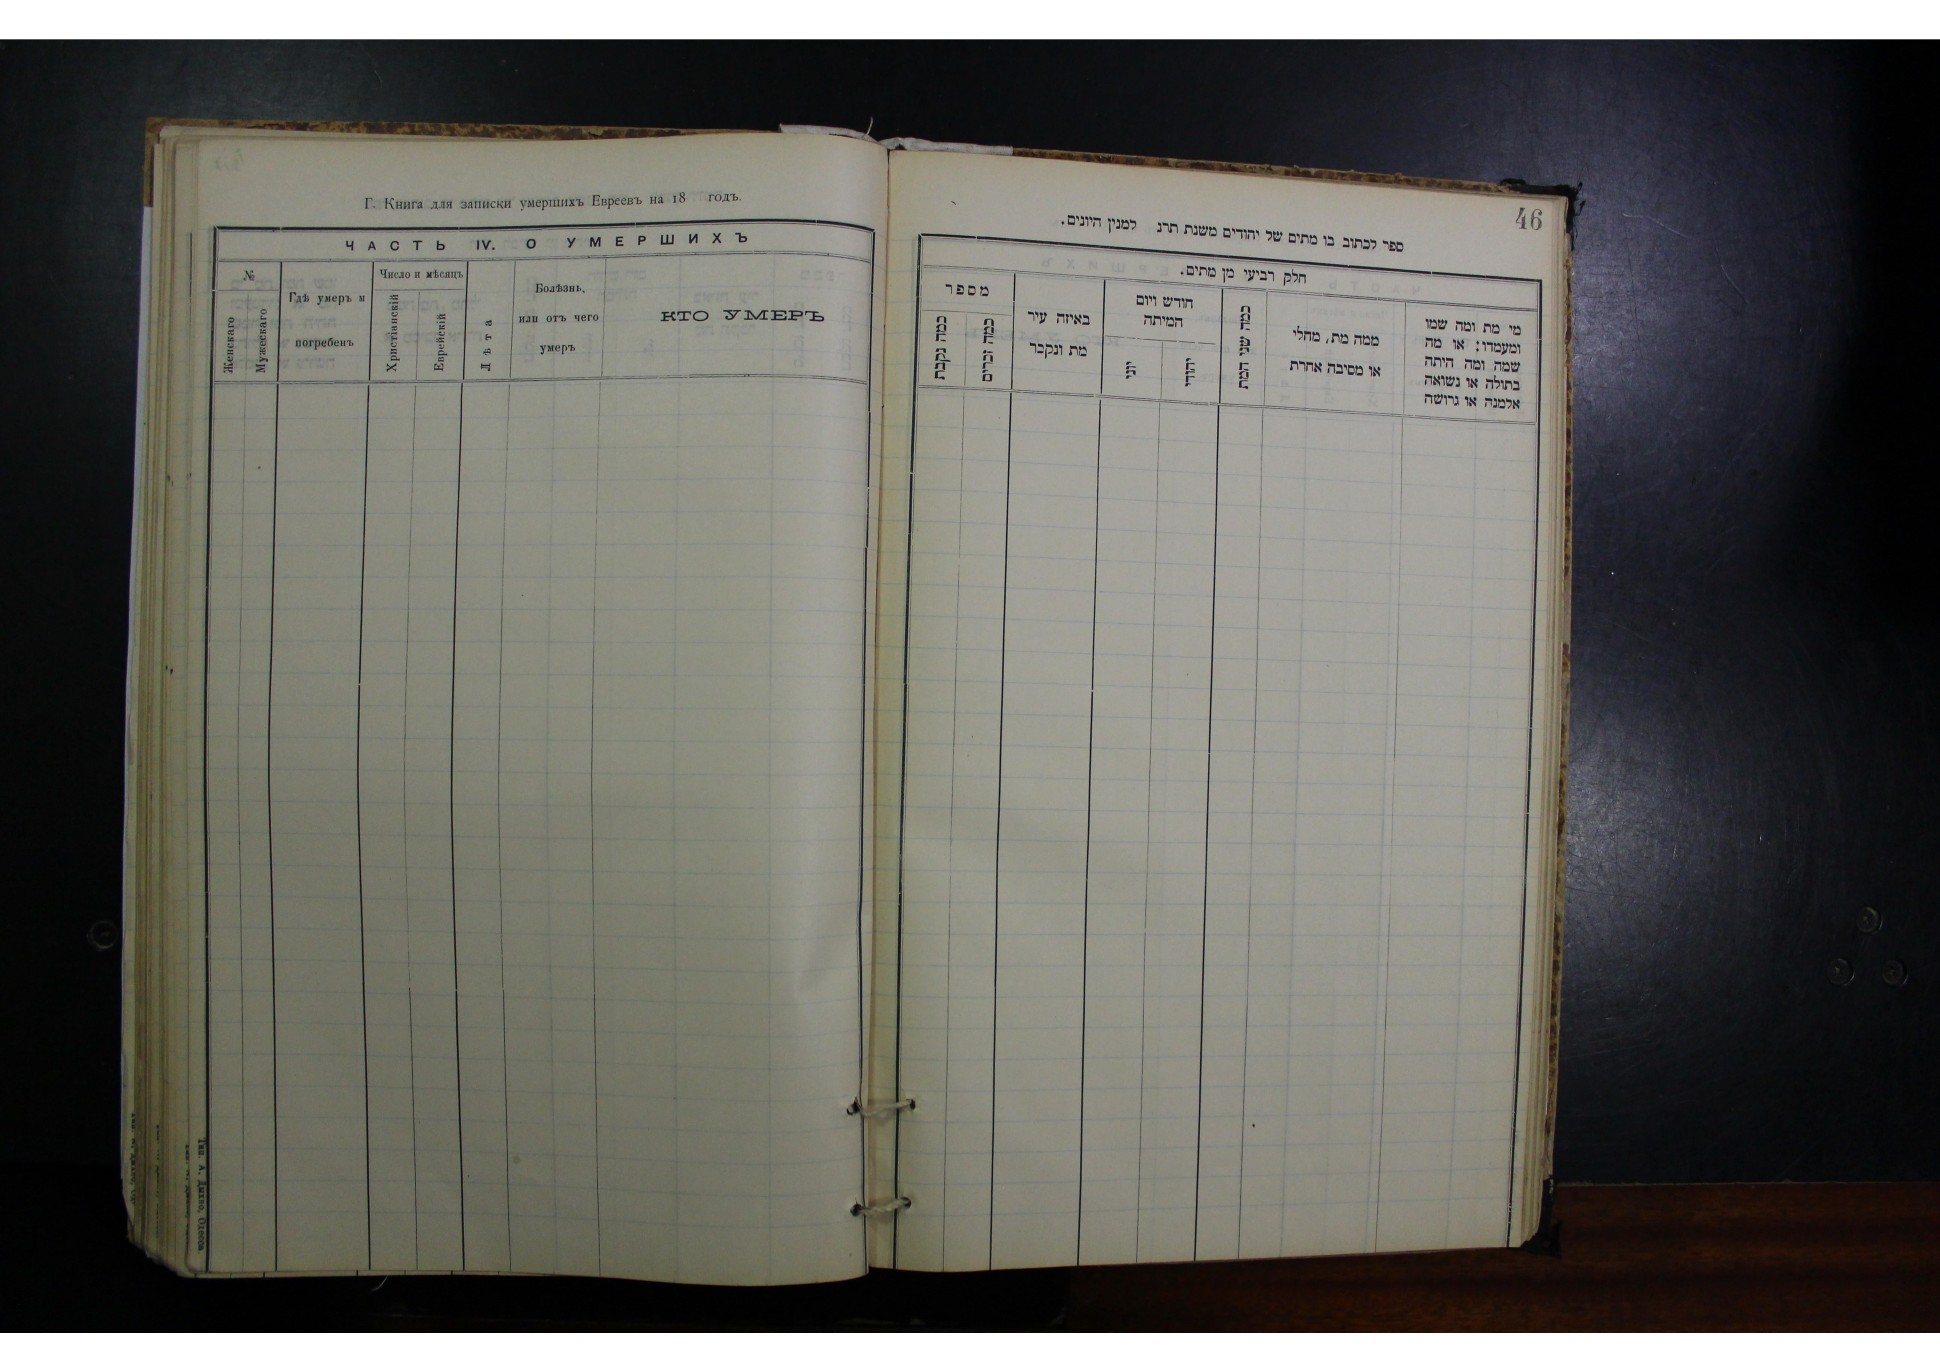 Г. Книга для записки умершихъ Евреевъ на 18 годъ.
ЧАСТЬ IV. О УМЕРШИХЪ
№
Женскаго
Мужескаго
Гдѣ умеръ и
погребенъ
Число и мѣсяцъ
Христіанскій
Еврейскій
Лѣта
Болѣзнь,
или отъ чего
умеръ
КТО УМЕРЪ
Тип. А. Дыхно, Одесса
46
ספר לכתוב בו מתים של יהודים משנת תרנ למנין היונים.
חלק רביעי מן מתים.
מספר
כמה נקבת
כמה זכרים
באיזה עיר
מת ונקבר
חודש ויום
המיתה
יוני
יהודי
כמה שני המת
ממה מת, מחלי
או מסיבה אחרת
מי מת ומה שמו
ומעמדו; או מה
שמה ומה היתה
בתולה או נשואה
אלמנה או גרושה